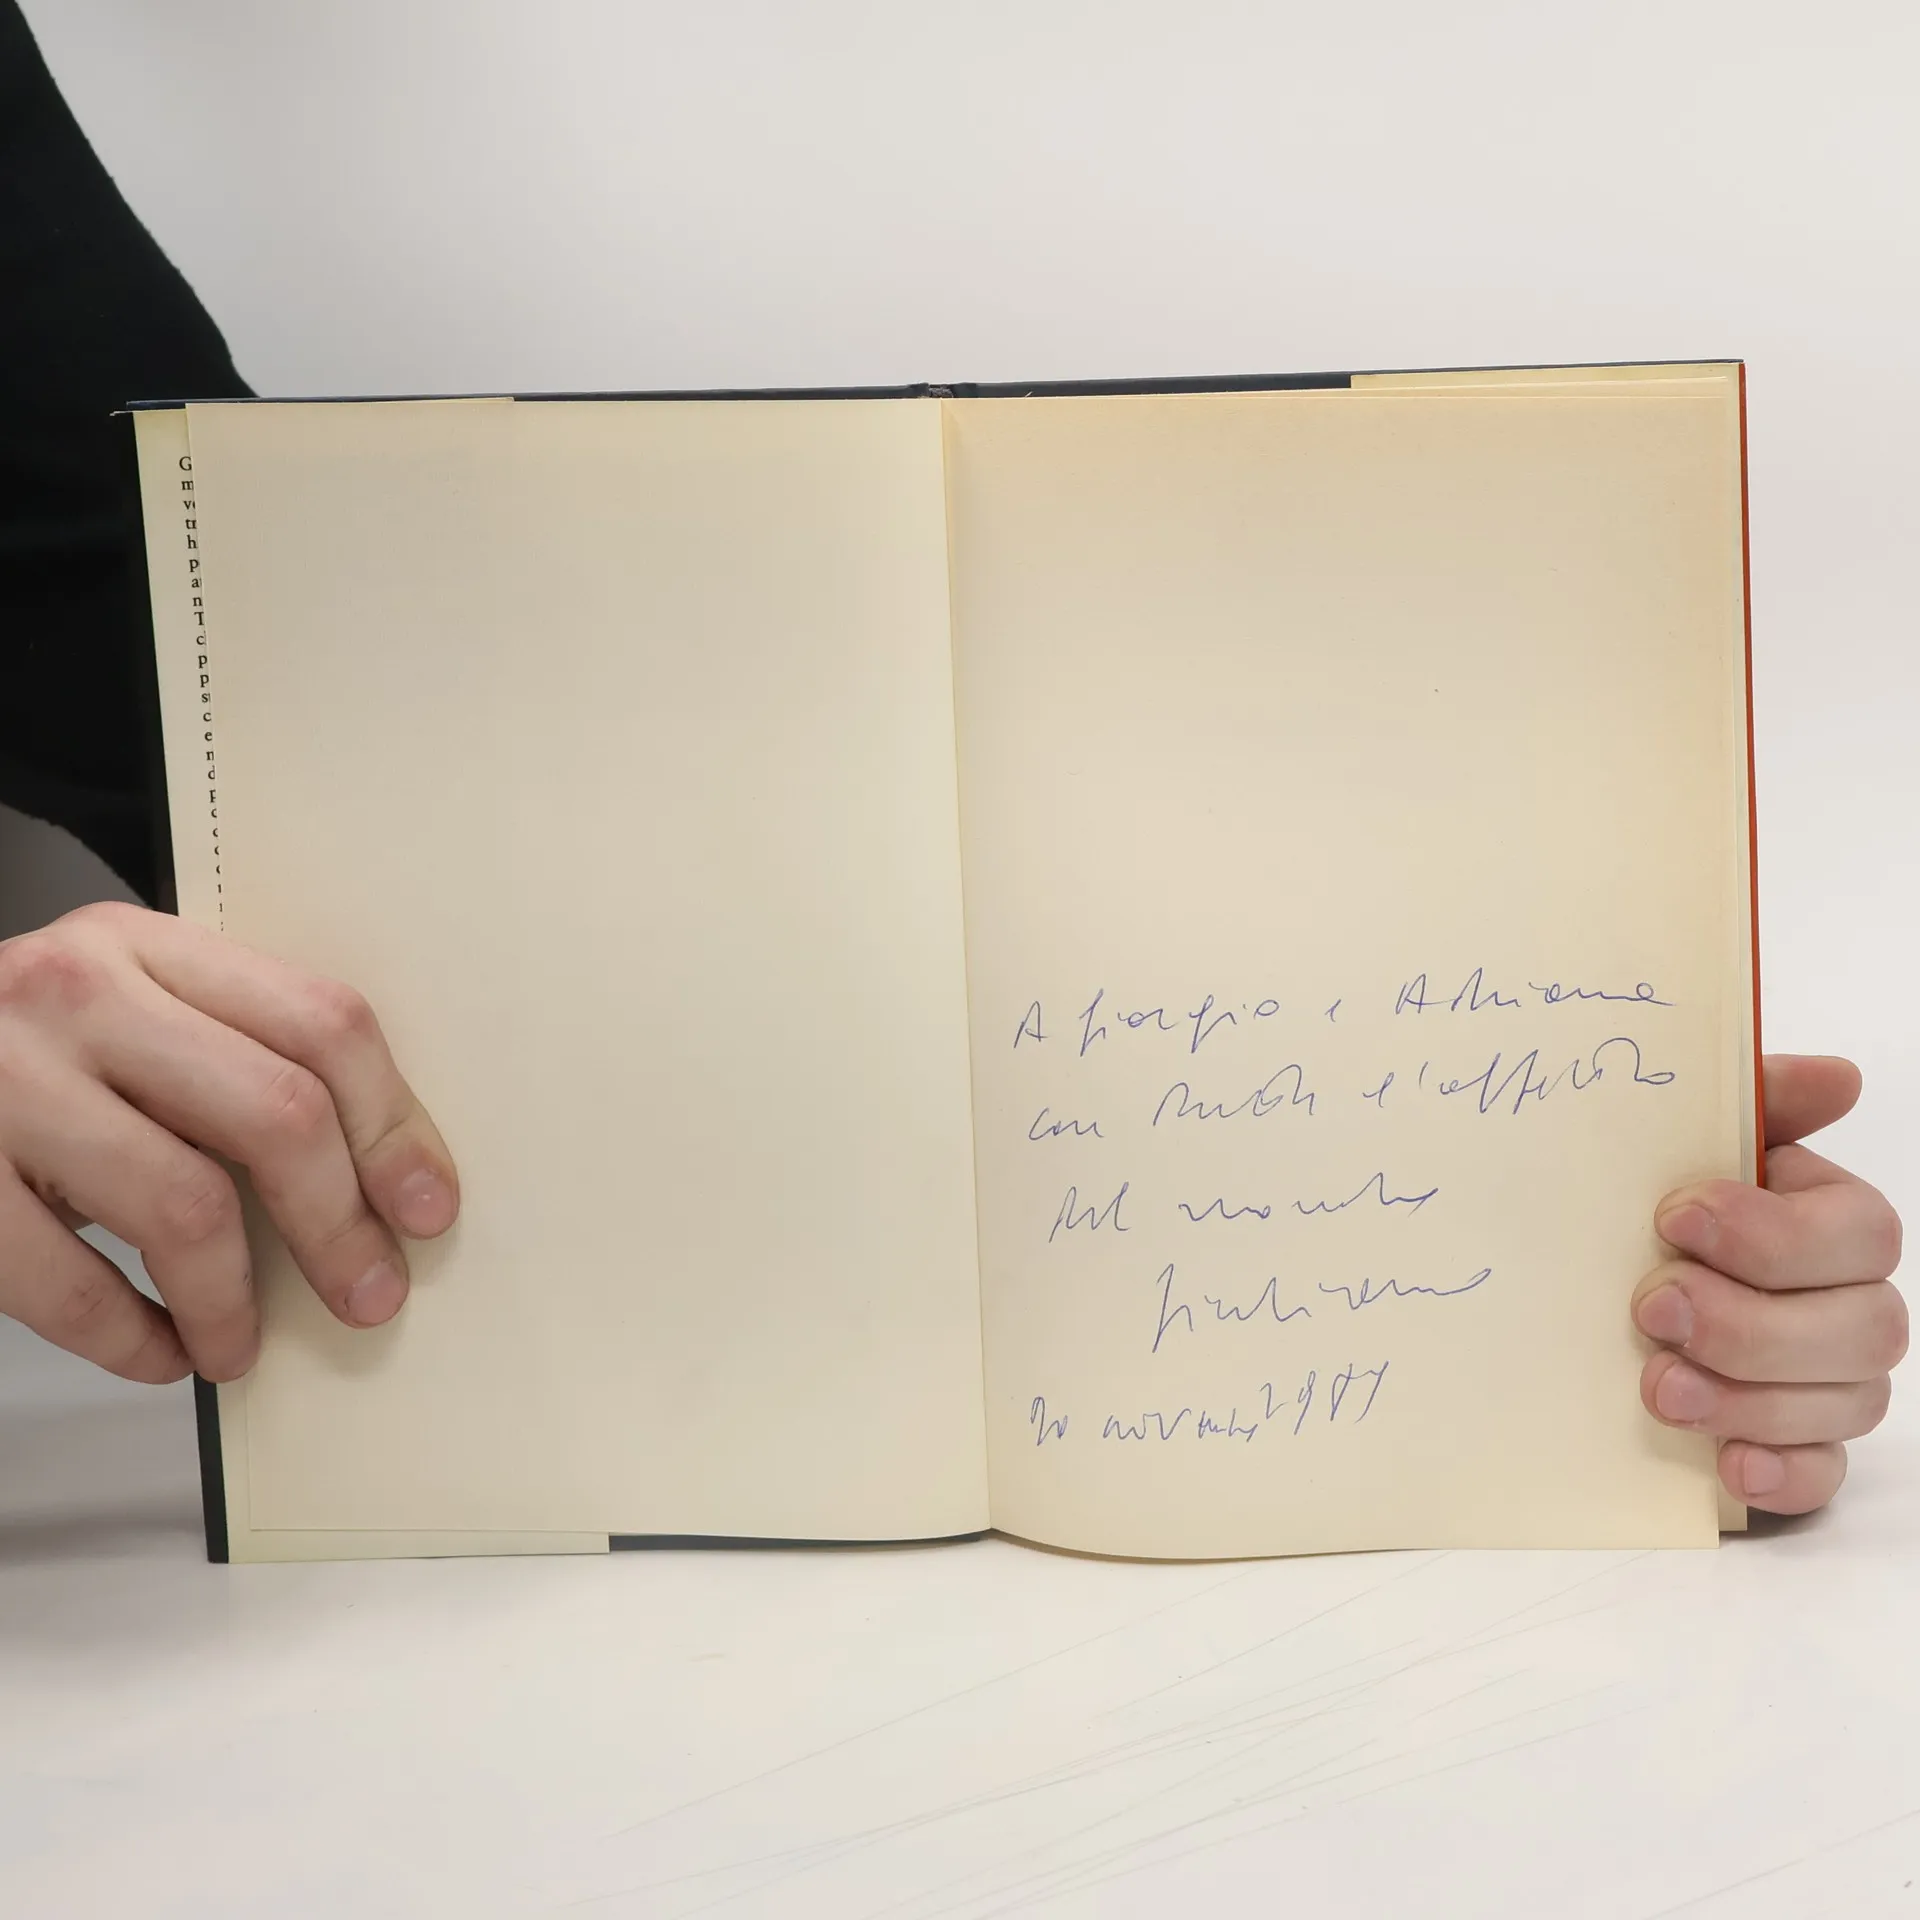 G
m
v
tr
h
p
a
n
T
c
p
p
s
c
e
n
d
p
A Giorgio e Adriana
con tutto l'affetto
del mondo
Giuliano
20 novembre 1987